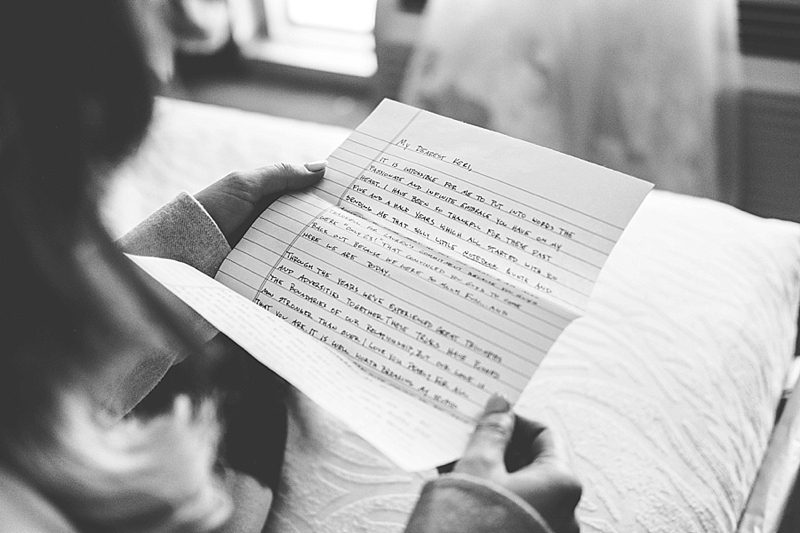 MY DEAREST KERI,
IT IS IMPOSSIBLE FOR ME TO PUT INTO WORDS THE
PASSIONATE AND INFINITE EMBRACE YOU HAVE ON MY
HEART. I HAVE BEEN SO THANKFUL FOR THESE PAST
FIVE AND A HALF YEARS WHICH ALL STARTED WITH
SENDING ME THAT SILLY LITTLE NOTEBOOK QUOTE AND
THAT CONTINUED TO
BACK OUT BECAUSE WE WERE SO MUCH FUN, AND
HERE WE ARE TODAY.
THROUGH THE YEARS WE'VE EXPERIENCED GREAT TRIUMPHS
AND ADVERSITIES TOGETHER. THESE TRIALS HAVE PUSHED
THE BOUNDARIES OF OUR RELATIONSHIP, BUT OUR LOVE IS
NOW STRONGER THAN EVER. I LOVE YOU DEARLY FOR ALL
THAT YOU ARE. IT IS WELL WORTH